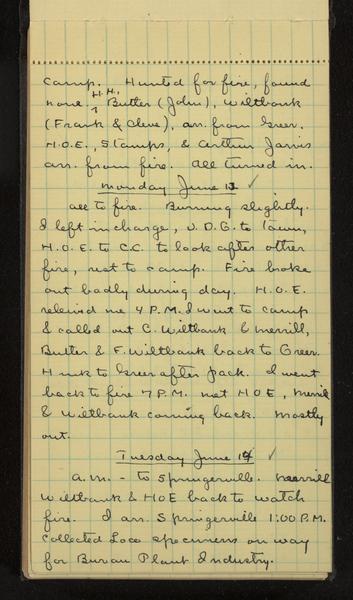 camp. Hunted for fire, found
none. H.H. Butler (John), Wiltbank
(Frank & Cleve), arr. from Greer.
H.O.E., Stamps, & Arthur Jarvis
arr. from fire. All turned in.
Monday June 13 ✓
All to fire. Burning slightly.
I left in charge, J.D.G. to Town,
H.O.E. to C.C. to look after other
fire, rest to camp. Fire broke
out badly during day. H.O.E.
relieved me 4 P.M. I went to camp
& called out C. Wiltbank & Merrill,
Butler & F. Wiltbank back to Greer.
to Greer after pack. I went
back to fire 7 P.M. met HOE, Merrill
& Wiltbank coming back. Mostly
out.
Tuesday June 14 ✓
a.m. - to Springerville. Merrill
Wiltbank & HOE back to watch
fire. I arr. Springerville 1:00 P.M.
Collected Loco specimens on way
for Bureau Plant Industry.